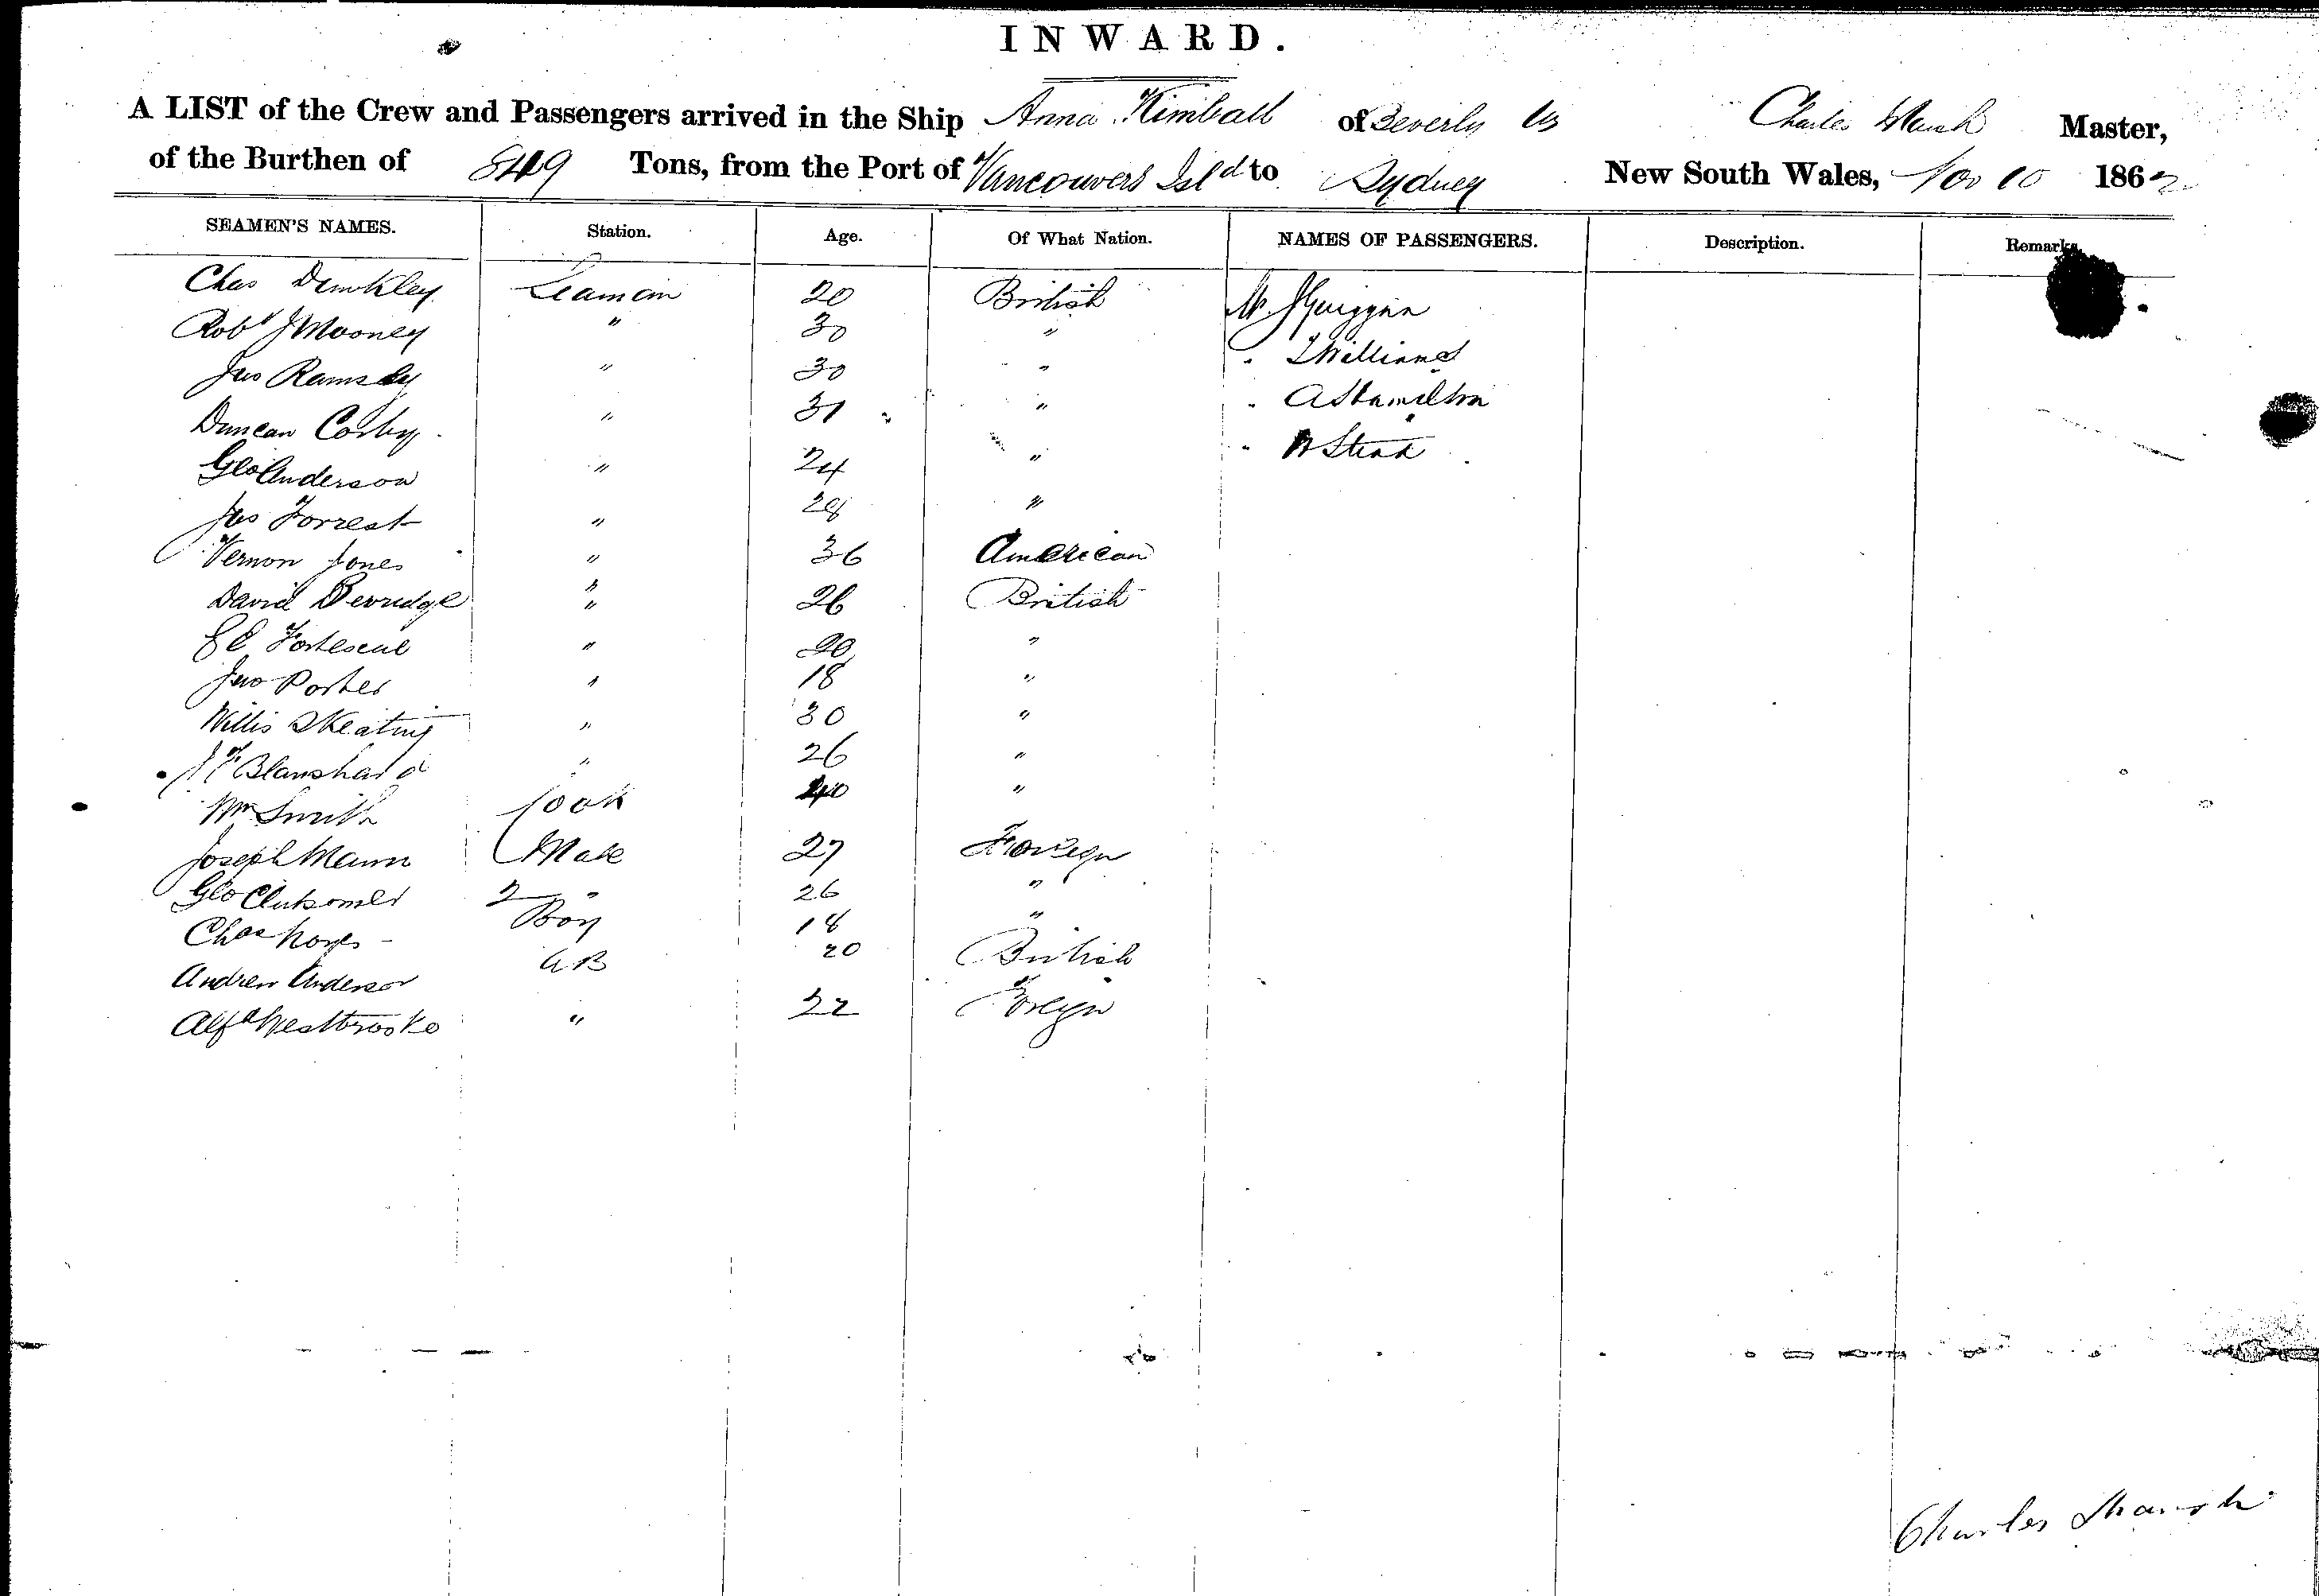 INWARD.
A LIST of the Crew and Passengers arrived in the Ship Anna Kimball of Beverly US Charles Marsh Master,
of the Burthen of 849 Tons, from the Port of Vancouvers Isld to Sydney New South Wales, Nov 10 1862
SEAMEN'S NAMES. Station. Age. Of What Nation. NAMES OF PASSENGERS. Description. Remarks.
Chas Seaman 20 British Mr
Robt J Mooney " 30 " " Williams
Jno Ramsey " 30 " " A Hamilton
Duncan " 31 " "
Geo Anderson " 24 "
Jas Forrest " 28 "
Vernon Jones " 36 American
David " 26 British
Fortescue " 20 "
Jno Porter " 18 "
Willis Keating " 30 "
Blanshard " 26 "
Wm Smith Cook 40 "
Joseph Mann Mate 27 Foreign
Geo 2 " 26 "
Chas Boy 18 "
Andrew Anderson AB 20 British
Alfd Westbrooke " 22 Foreign
Charles Marsh